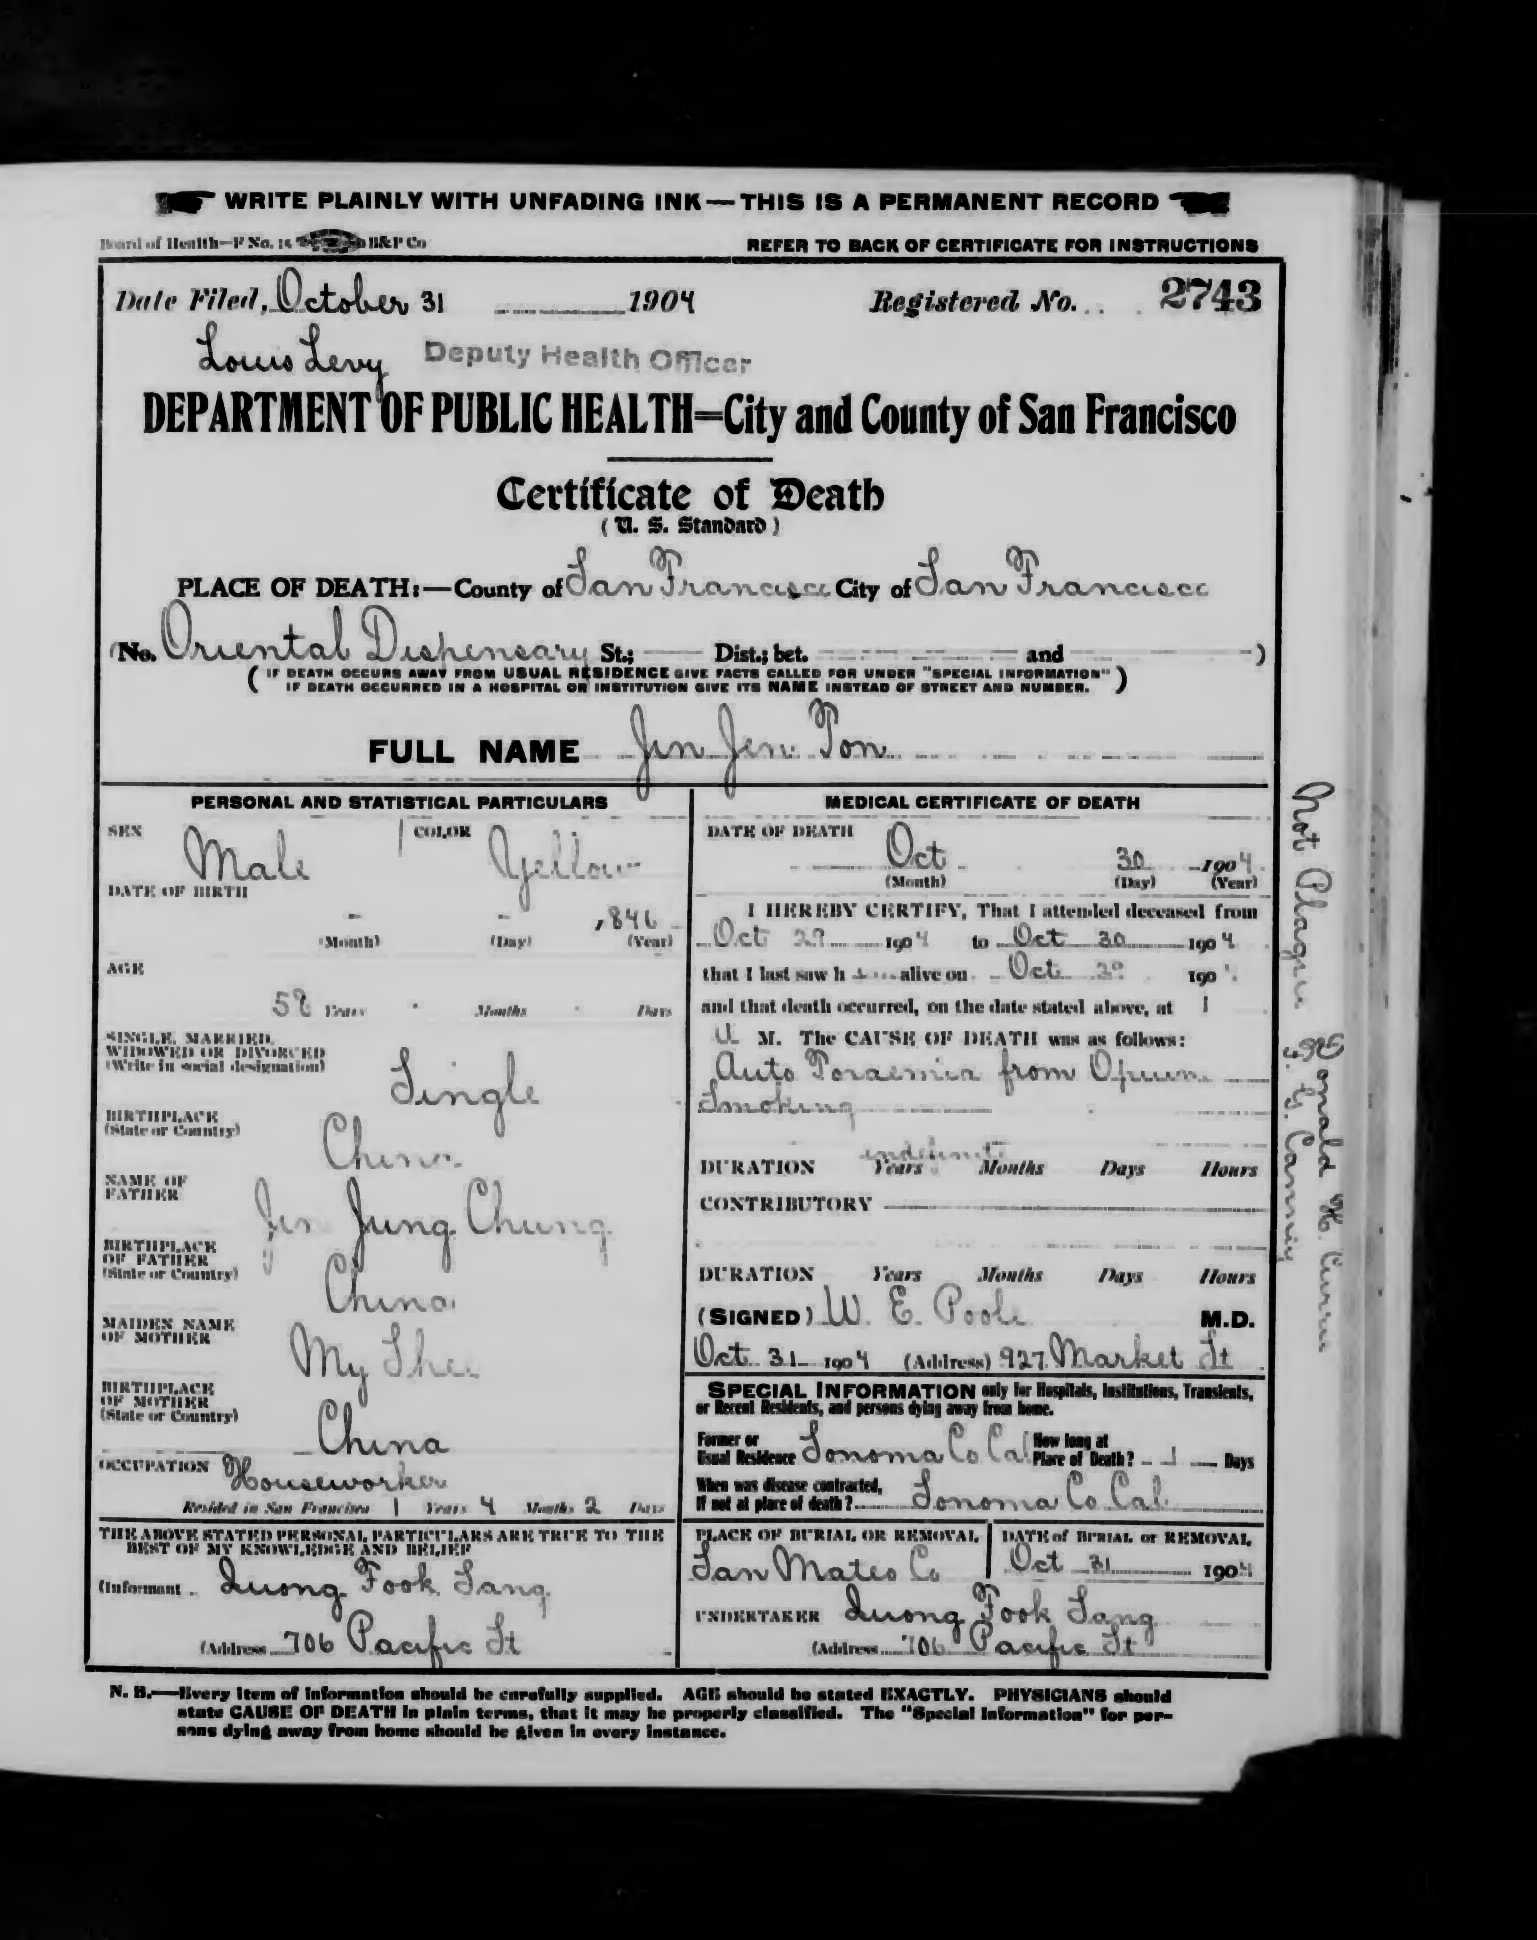 WRITE PLAINLY WITH UNFADING INK — THIS IS A PERMANENT RECORD
Board of Health—F No. 15 B&P Co
REFER TO BACK OF CERTIFICATE FOR INSTRUCTIONS
Date Filed, October 31 1904 Registered No. 2743
Louis Levy Deputy Health Officer
DEPARTMENT OF PUBLIC HEALTH=City and County of San Francisco
Certificate of Death
(U. S. Standard)
PLACE OF DEATH:—County of San Francisco City of San Francisco
(No. Oriental Dispensary St.; Dist.; bet. and )
( IF DEATH OCCURS AWAY FROM USUAL RESIDENCE GIVE FACTS CALLED FOR UNDER "SPECIAL INFORMATION"
IF DEATH OCCURRED IN A HOSPITAL OR INSTITUTION GIVE ITS NAME INSTEAD OF STREET AND NUMBER. )
FULL NAME Jin Jen Ton
PERSONAL AND STATISTICAL PARTICULARS
SEX Male COLOR Yellow
DATE OF BIRTH
- - 1846
(Month) (Day) (Year)
AGE
58 Years Months Days
SINGLE, MARRIED,
WIDOWED OR DIVORCED
(Write in social designation)
Single
BIRTHPLACE
(State or Country)
China
NAME OF
FATHER
Jin Jung Chung
BIRTHPLACE
OF FATHER
(State or Country)
China
MAIDEN NAME
OF MOTHER
My Shee
BIRTHPLACE
OF MOTHER
(State or Country)
China
OCCUPATION Houseworker
Resided in San Francisco 1 Years 4 Months 2 Days
THE ABOVE STATED PERSONAL PARTICULARS ARE TRUE TO THE
BEST OF MY KNOWLEDGE AND BELIEF
(Informant Quong Fook Sang
(Address 706 Pacific St
MEDICAL CERTIFICATE OF DEATH
DATE OF DEATH
Oct 30 1904
(Month) (Day) (Year)
I HEREBY CERTIFY, That I attended deceased from
Oct 29 1904 to Oct 30 1904
that I last saw h alive on Oct 190
and that death occurred, on the date stated above, at 1
M. The CAUSE OF DEATH was as follows:
Auto Toxaemia from Opium
Smoking
indefinite
DURATION Years Months Days Hours
CONTRIBUTORY
DURATION Years Months Days Hours
(SIGNED) W. E. Poole M.D.
Oct 31 1904 (Address) 927 Market St
SPECIAL INFORMATION only for Hospitals, Institutions, Transients,
or Recent Residents, and persons dying away from home.
Former or
Usual Residence Sonoma Co Cal
How long at
Place of Death? 1 Days
When was disease contracted,
If not at place of death? Sonoma Co Cal
PLACE OF BURIAL OR REMOVAL
San Mateo Co
DATE of BURIAL or REMOVAL
Oct 31 1904
UNDERTAKER Quong Fook Sang
(Address 706 Pacific St
N. B.—Every item of information should be carefully supplied. AGE should be stated EXACTLY. PHYSICIANS should
state CAUSE OF DEATH in plain terms, that it may be properly classified. The "Special Information" for per-
sons dying away from home should be given in every instance.
Not Plague
Donald H. Currie
F. G. Canning